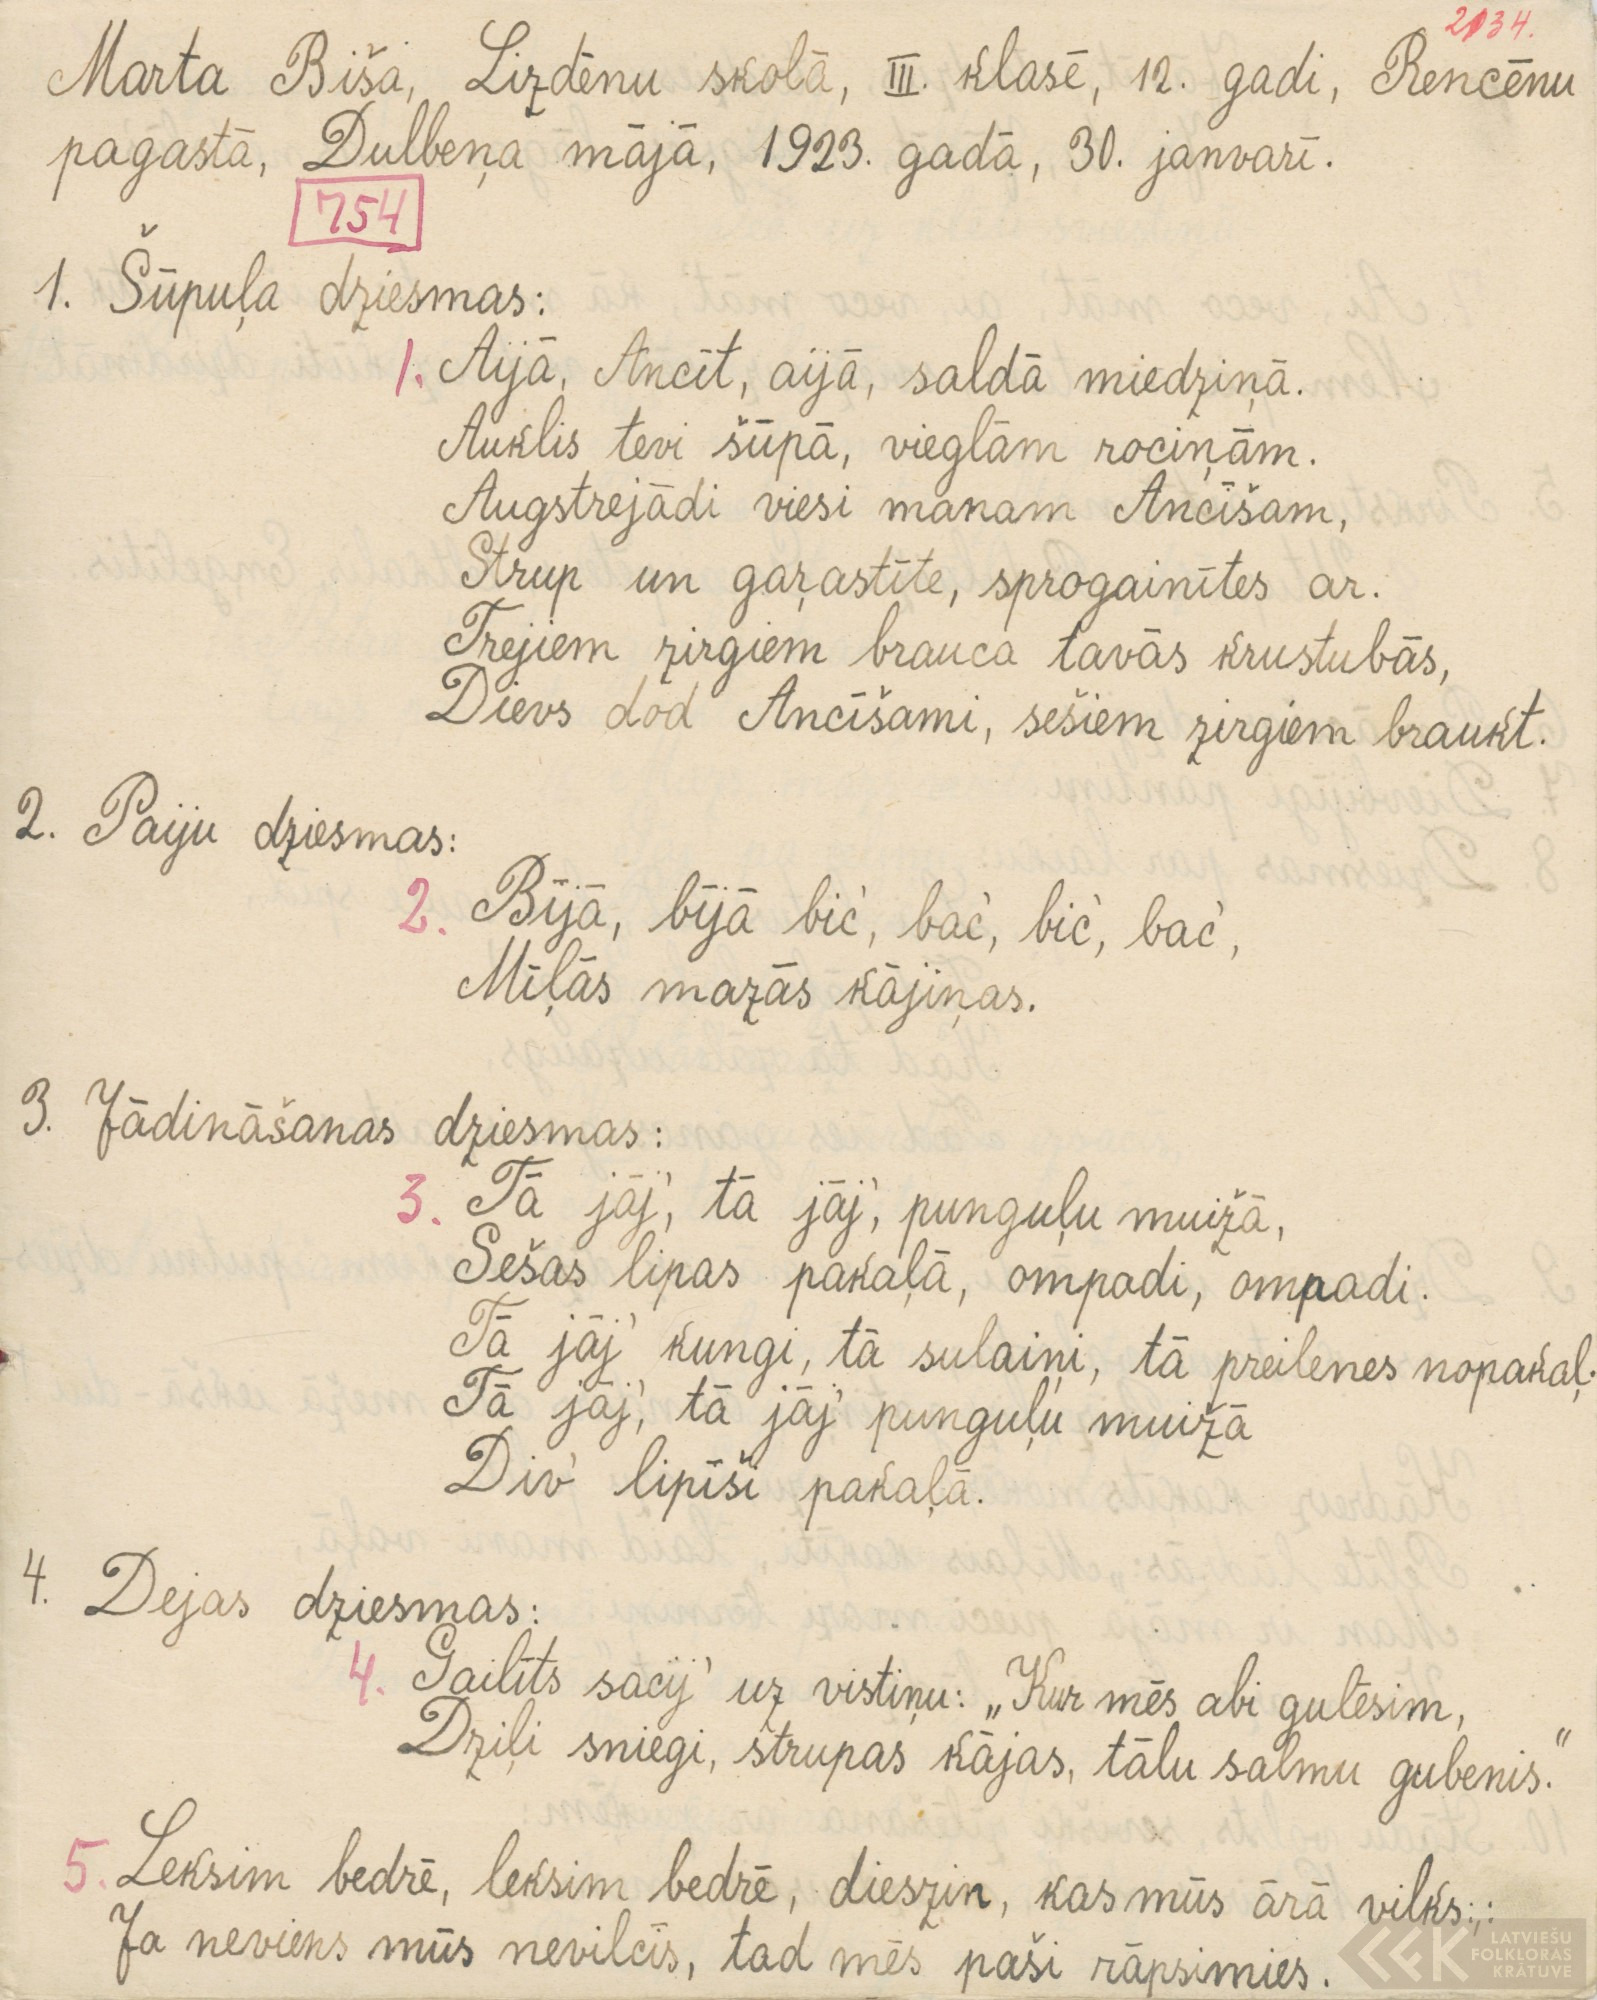 2134.
Marta Biša, Lizdēnu skolā, III. klasē, 12. gadi, Rencēnu
pagastā, Dulbeņa mājā, 1923. gadā, 30. janvarī.
754
1. Šūpuļa dziesmas:
1. Aijā, Ancīt, aijā, saldā miedziņā.
Auklis tevi šūpā, vieglām rociņām.
Augstrejādi viesi manam Ancīšam,
Strup un gaŗastīte, sprogainītes ar.
Trejiem zirgiem brauca tavās krustubās,
Dievs dod Ancīšami, sešiem zirgiem braukt.
2. Paiju dziesmas:
2. Bījā, bījā bic', bac', bic', bac',
Mīļās mazās kājiņas.
3. Jādināšanas dziesmas:
3. Tā jāj', tā jāj', punguļu muižā,
Sešas lipas pakaļā, ompadi, ompadi.
Tā jāj' kungi, tā sulaiņi, tā preilenes nopakaļ.
Tā jāj', tā jāj' punguļu muižā
Div' lipīši pakaļā.
4. Dejas dziesmas:
4. Gailīts sacīj' uz vistiņu: „Kur mēs abi gulēsim,
Dziļi sniegi, strupas kājas, tālu salmu gubenis."
5. Leksim bedrē, leksim bedrē, dieszin, kas mūs ārā vilks:,:
Ja neviens mūs nevilcīs, tad mēs paši rāpsimies.
LATVIEŠU
FOLKLORAS
KRĀTUVE